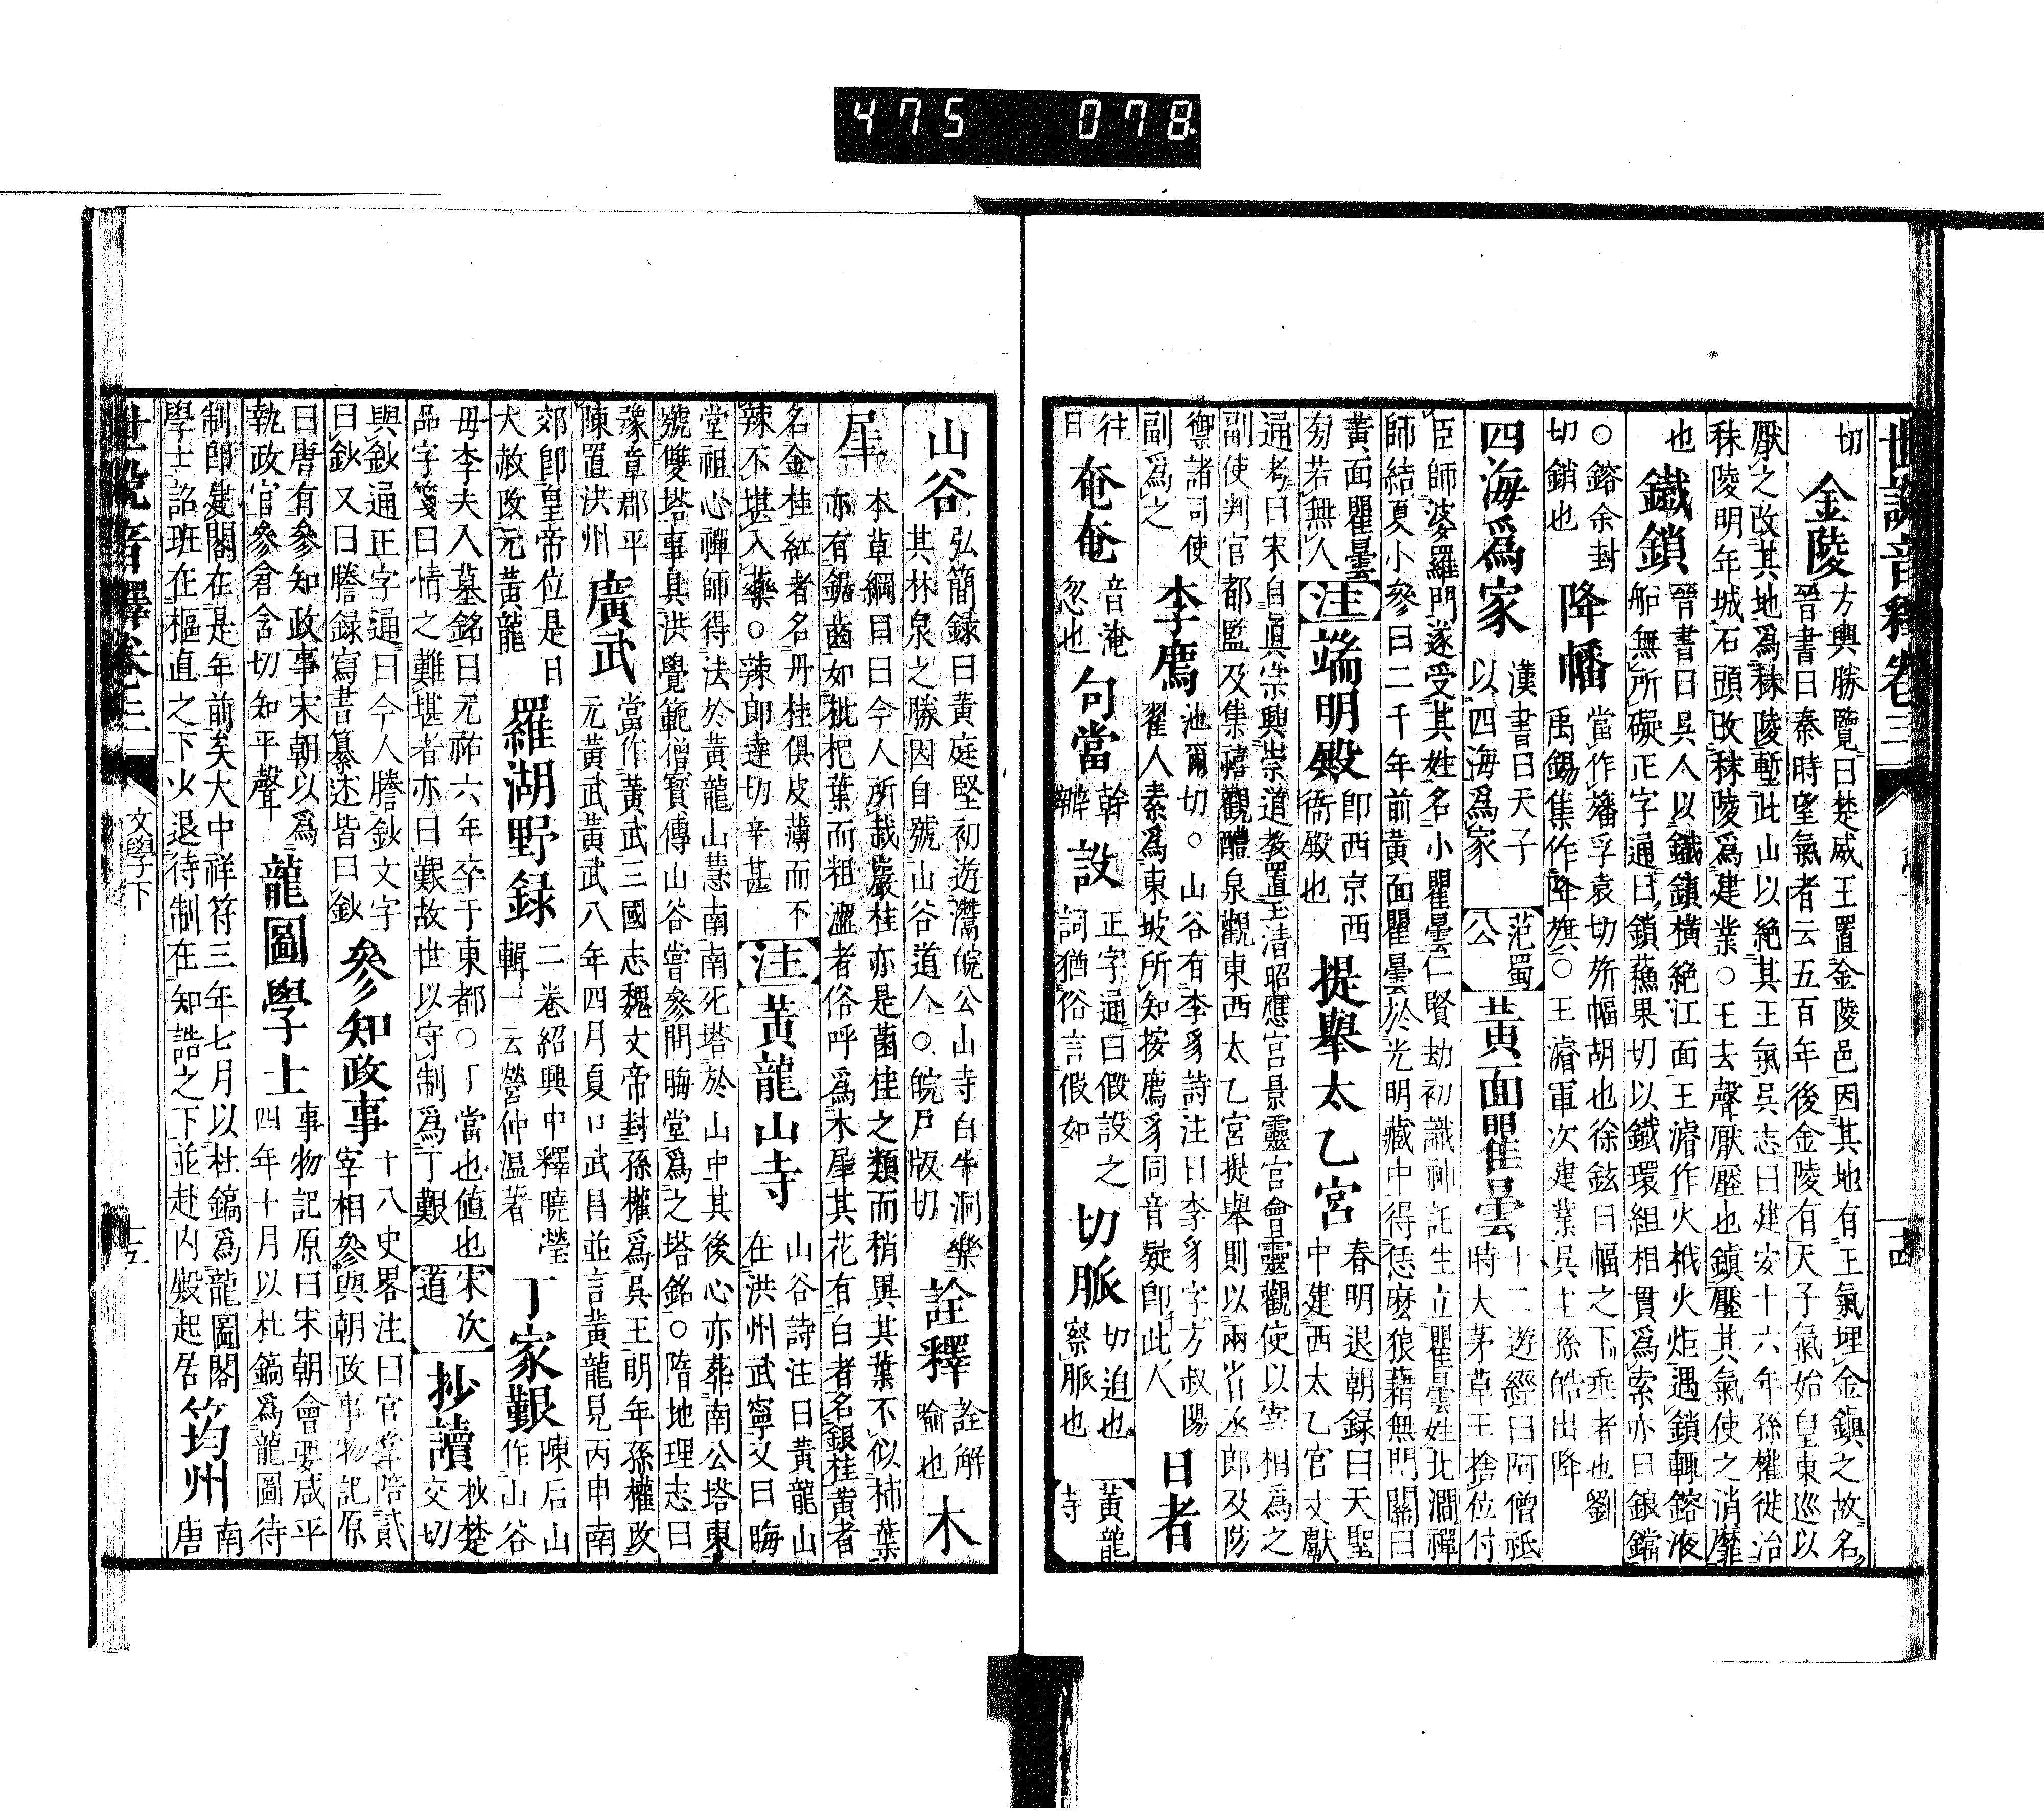 475 078
世說音釋卷三
十四
切
金陵
方輿勝覽曰楚威王置金陵邑因其地有王氣埋金鎮之故名
晉書曰秦時望氣者云五百年後金陵有天子氣始皇東巡以
厭之改其地爲秣陵塹此山以絶其王氣吳志曰建安十六年孫權徙治
秣陵明年城石頭改秣陵爲建業○王去聲厭壓也鎮壓其氣使之消靡
也
鐵鎖
晉書曰吳人以鐵鎖橫絶江面王濬作火栰火炬遇鎖輒鎔液
船無所礙正字通曰鎖蘇果切以鐵環組相貫爲索亦曰鋃鐺
○鎔余封
切銷也
降幡
當作旛孚袁切旂幅胡也徐鉉曰幅之下垂者也劉
禹錫集作降旗○王濬軍次建業吳主孫皓出降
四海爲家
漢書曰天子
以四海爲家
范蜀
公
黃面瞿曇
十二遊經曰阿僧祇
時大茅草王捨位付
臣師婆羅門遂受其姓名小瞿曇仁賢劫初識神託生立瞿曇姓北澗禪
師結夏小參曰二千年前黃面瞿曇於光明藏中得恁麽狼藉無門關曰
黃面瞿曇
旁若無人
注
端明殿
即西京西
衙殿也
提舉太乙宮
春明退朝録曰天聖
中建西太乙宮文獻
通考曰宋自眞宗興崇道教置玉清昭應宮景靈宮會靈觀使以宰相爲之
副使判官都監及集禧觀醴泉觀東西太乙宮提舉則以兩省丞郎及防
禦諸司使
副爲之
李廌
池爾切○山谷有李豸詩注曰李豸字方叔陽
翟人素爲東坡所知按廌豸同音疑即此人
日者
往
日
奄奄
音淹
忽也
句當
幹
辦
設
正字通曰假設之
詞猶俗言假如
切脈
切迫也
察脈也
黃龍
寺
山谷
弘簡録曰黃庭堅初遊灊皖公山寺白牛洞樂
其林泉之勝因自號山谷道人○皖戶版切
詮釋
詮解
喻也
木
犀
本草綱目曰今人所栽巖桂亦是菌桂之類而稍異其葉不似柿葉
亦有鋸齒如枇杷葉而粗澀者俗呼爲木犀其花有白者名銀桂黃者
名金桂紅者名丹桂俱皮薄而不
辣不堪入藥○辣郎達切辛甚
注
黃龍山寺
山谷詩注曰黃龍山
在洪州武寧又曰晦
堂祖心禪師得法於黃龍山慧南南死塔於山中其後心亦葬南公塔東
號雙塔事具洪覺範僧寳傳山谷嘗參問晦堂爲之塔銘○隋地理志曰
豫章郡平
陳置洪州
廣武
當作黃武三國志魏文帝封孫權爲吳王明年孫權改
元黃武黃武八年四月夏口武昌並言黃龍見丙申南
郊即皇帝位是日
大赦改元黃龍
羅湖野録
二卷紹興中釋曉瑩
輯一云營仲温著
丁家艱
陳后山
作山谷
毋李夫人墓銘曰元祐六年卒于東都○丁當也値也
品字箋曰情之難堪者亦曰艱故世以守制爲丁艱
宋次
道
抄讀
抄楚
交切
與鈔通正字通曰今人謄鈔文字
曰鈔又曰謄録寫書纂述皆曰鈔
參知政事
十八史畧注曰官掌陪貳
宰相參與朝政事物記原
曰唐有參知政事宋朝以爲
執政官參倉含切知平聲
龍圖學士
事物記原曰宋朝會要咸平
四年十月以杜鎬爲龍圖待
制即建閣在是年前矣大中祥符三年七月以杜鎬爲龍圖閣
學士詔班在樞直之下火退待制在知誥之下並赴内殿起居
筠州
南
唐
世說音釋卷三
文學下
十五